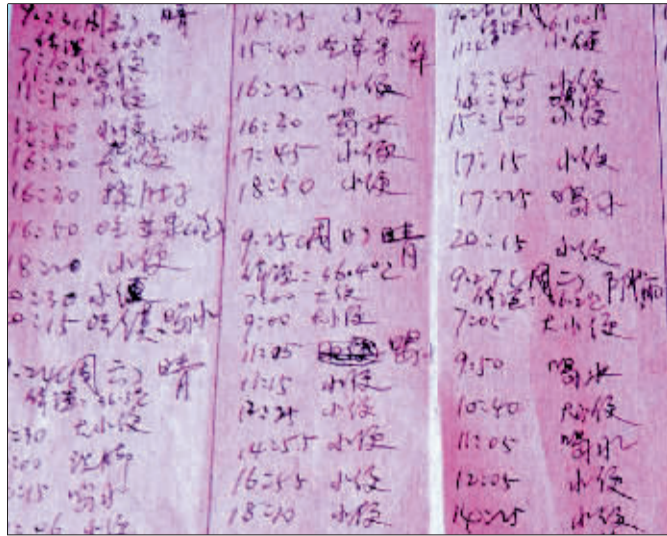 9.23(周五) 晴
体温: 36.4℃
7:10 小便
11:00 喝水
11:50 小便
12:50 小便
16:20 大小便
16:30
16:50 吃苹果
18:20 小便
20:30 小便
0:15 喝水
9.24(周六) 晴
体温: 36.2℃
:30 大小便
:00 洗脚
:15 喝水
:06 小便
14:25 小便
15:40 吃苹果
16:25 小便
16:30 喝水
17:45 小便
18:50 小便
9.25(周日) 晴
体温: 36.4℃
7:00 大便
9:00 大小便
11:05 喝水
11:15 小便
12:25 小便
14:55 小便
16:55 小便
18:10 小便
小便
13:45 小便
14:40 喝水
15:50 小便
17:15 小便
17:25 喝水
20:15 小便
9.27(周二) 阴雨
体温: 36.2℃
7:05 大小便
9:50 喝水
10:40 小便
11:05 喝水
12:05 小便
14:25 小便